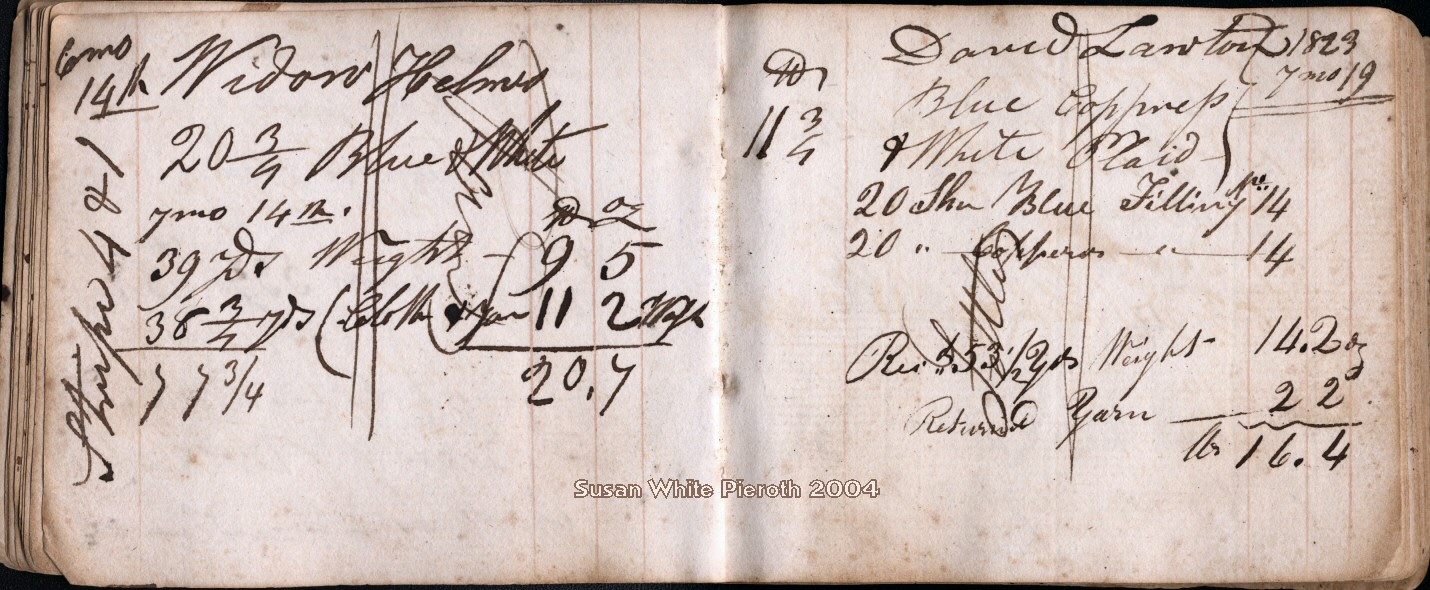 6mo
14th Widow Helmes
20 3/4 Blue & White
7mo 14th. lb oz
39 yds Weight - 9 5
38 3/4 yds (Cloth & Yarn 11 2
77 3/4 20.7
Stripe 4 & 1
David Lawton 1823
7mo 19
lb
11 3/4
Blue Coppress
& White Plaid
20 Skn Blue Filling No. 14
20 " Copperas " 14
53 1/2 yds Weight 14.2 oz
Returned Yarn 2 2
lbs 16.4
Susan White Pieroth 2004